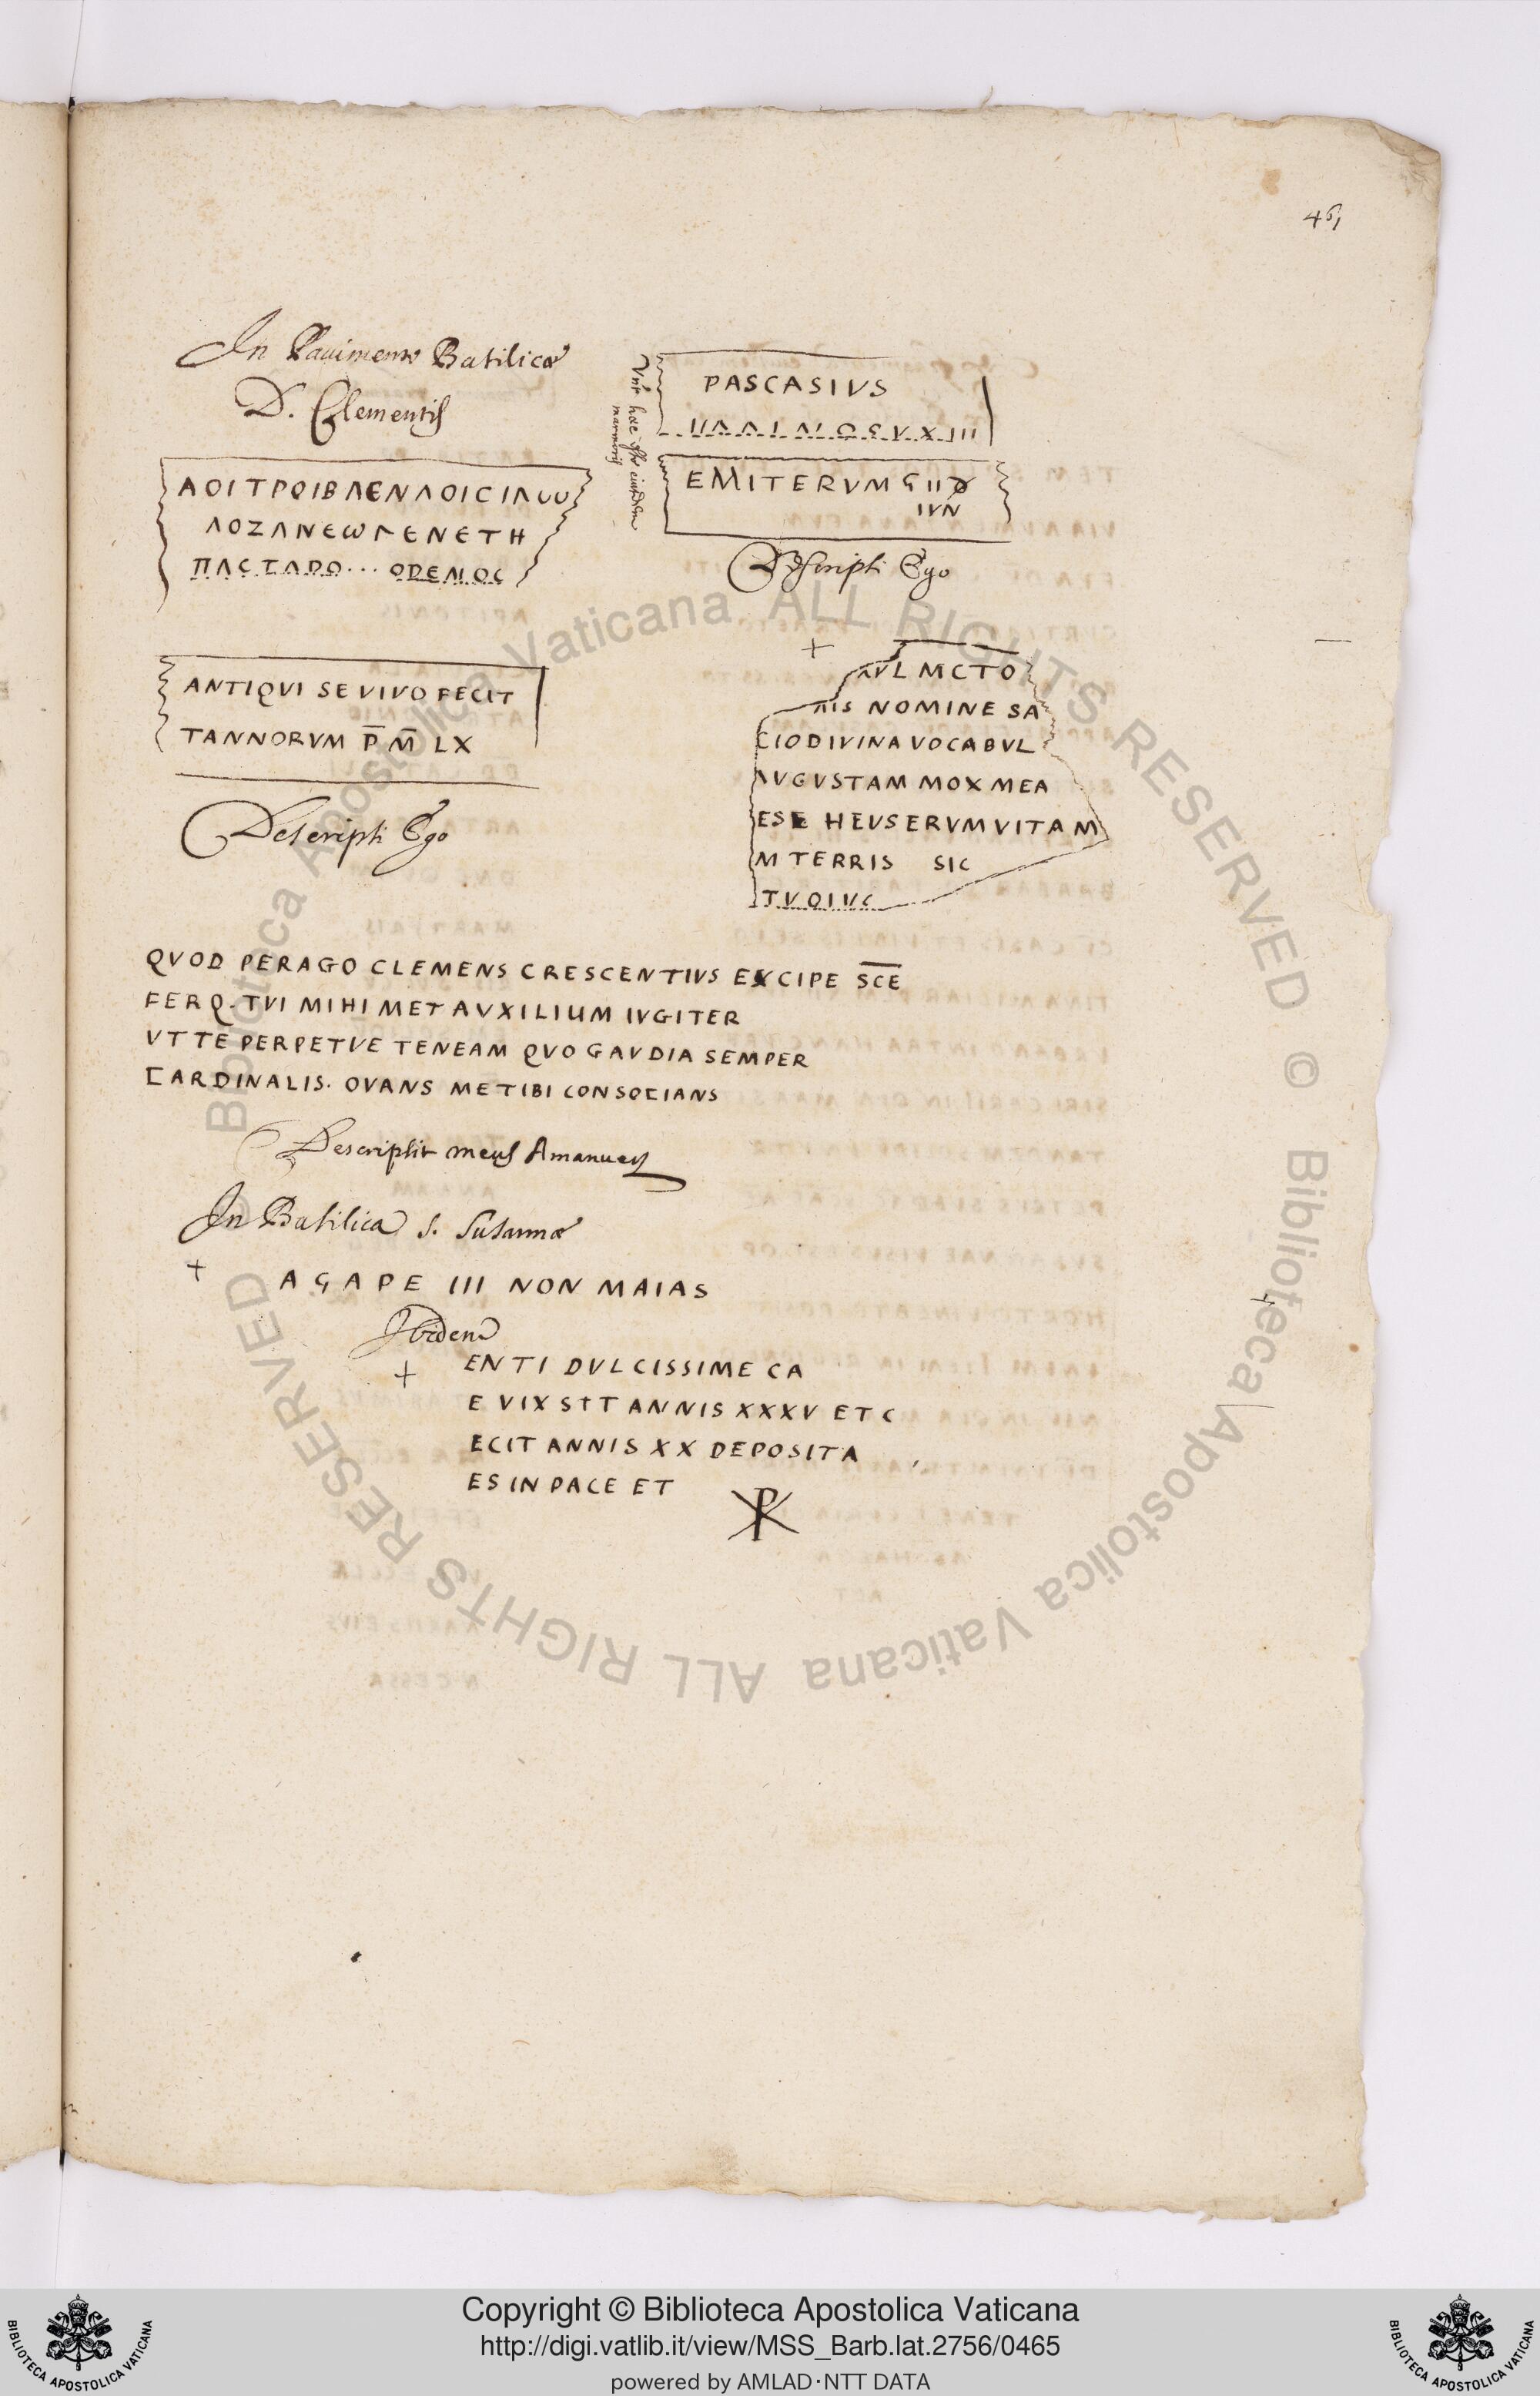 461
In Pauimento Basilicæ
D. Clementis
ΑΟΙΤΡΟΙΒΛΕΝΛΟΙCΙΛ
ΛΟΖΛΝΕωΓΕΝΕΤΗ
ΠΑCΤΑΡΟ...ΟΡΕΝΟC
PASCASIVS
EMITERVM G II
IVN
Descripsi Ego
ANTIQVI SE VIVO FECIT
TANNORVM P̅ M̅ LX
Descripsi Ego
+
VL MCTO
NIS NOMINE SA
CIO DIVINA VOCABVL
AVGVSTAM MOX MEA
ESE HEVSERVM VITAM
M TERRIS SIC
QVOD PERAGO CLEMENS CRESCENTIVS EXCIPE S̅C̅E̅
FERQ. TVI MIHI MET AVXILIUM IVGITER
VT TE PERPETVE TENEAM QVO GAVDIA SEMPER
CARDINALIS. OVANS ME TIBI CONSOCIANS
Descripsit meus Amanuens
In Basilica S. Susannæ
+ AGAPE III NON MAIAS
Ibidem
+ ENTI DVLCISSIME CA
E VIX SIT ANNIS XXXV ET C
ECIT ANNIS XX DEPOSITA
ES IN PACE ET ☧
© Biblioteca Apostolica Vaticana ALL RIGHTS RESERVED
© Biblioteca Apostolica Vaticana ALL RIGHTS RESERVED
Copyright © Biblioteca Apostolica Vaticana
http://digi.vatlib.it/view/MSS_Barb.lat.2756/0465
powered by AMLAD·NTT DATA
BIBLIOTECA APOSTOLICA VATICANA
BIBLIOTECA APOSTOLICA VATICANA